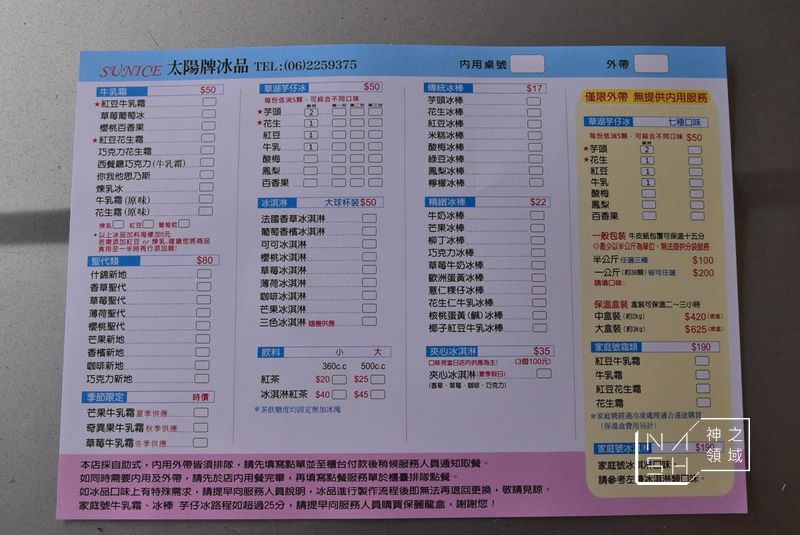 SUNICE 太陽牌冰品 TEL:(06)2259375 內用桌號 外帶
牛乳霜 $50
★紅豆牛乳霜
草莓葡萄冰
櫻桃百香果
★紅豆花生霜
巧克力花生霜
西餐廳巧克力(牛乳霜)
你我他思乃斯
煉乳冰
牛乳霜(原味)
花生霜(原味)
煉乳 紅豆 葡萄乾
*以上冰品加料每樣加5元
若需添加紅豆 or 煉乳,建議您將商品
食用至一半時再行添加喔!
聖代類 $80
什錦新地
香草聖代
草莓聖代
薄荷聖代
櫻桃聖代
芒果新地
香檳新地
咖啡新地
巧克力新地
季節限定 時價
芒果牛乳霜 夏季供應
奇異果牛乳霜 秋季供應
草莓牛乳霜 冬季供應
草湖芋仔冰 $50
每份低消5顆,可綜合不同口味
★芋頭 2
★花生 1
紅豆 1
牛乳 1
酸梅
鳳梨
百香果
冰淇淋 大球杯裝$50
法國香草冰淇淋
葡萄香檳冰淇淋
可可冰淇淋
櫻桃冰淇淋
草莓冰淇淋
薄荷冰淇淋
咖啡冰淇淋
芒果冰淇淋
三色冰淇淋 隨機供應
飲料 小 大
360c.c 500c.c
紅茶 $20 $25
冰淇淋紅茶 $40 $45
*茶飲糖度均固定無加冰塊
傳統冰棒 $17
芋頭冰棒
花生冰棒
紅豆冰棒
米糕冰棒
酸梅冰棒
綠豆冰棒
鳳梨冰棒
檸檬冰棒
精緻冰棒 $22
牛奶冰棒
芒果冰棒
柳丁冰棒
巧克力冰棒
草莓牛奶冰棒
歐洲蛋黃冰棒
薏仁粿仔冰棒
花生仁牛乳冰棒
核桃蛋黃(鹹)冰棒
椰子紅豆牛乳冰棒
夾心冰淇淋 $35
口味視當日店內供應為主! (3個100元)
夾心冰淇淋(夏季假日)
(香草、草莓、咖啡、巧克力)
僅限外帶 無提供內用服務
草湖芋仔冰 七種口味
每份低消5顆,可綜合不同口味 $50
★芋頭 2
★花生 1
紅豆 1
牛乳 1
酸梅
鳳梨
百香果
一般包裝 牛皮紙包覆可保溫十五分
◎最少以半公斤為單位,無法提供分袋服務
半公斤 任選三種 $100
一公斤(約38顆)皆可任選 $200
請填口味:
保溫盒裝 盒裝可保溫二~三小時
中盒裝(約2kg) $420(含盒)
大盒裝(約3kg) $625(含盒)
家庭號霜類 $190
紅豆牛乳霜
牛乳霜
紅豆花生霜
花生霜
*家庭號經過冷凍處理適合遠途購買
(保溫盒費用另計)
家庭號冰淇淋 $190
家庭號冰淇淋口味
請參考左邊冰淇淋類口味。
NASH 神之領域
本店採自助式,內用外帶皆須排隊,請先填寫點單並至櫃台付款後稍候服務人員通知取餐。
如同時需要內用及外帶,請先於店內用餐完畢,再填寫點餐服務單於櫃臺排隊點餐。
如冰品口味上有特殊需求,請提早向服務人員說明,冰品進行製作流程後即無法再退回更換,敬請見諒。
家庭號牛乳霜、冰棒 芋仔冰路程如超過25分,請提早向服務人員購買保麗龍盒,謝謝您!